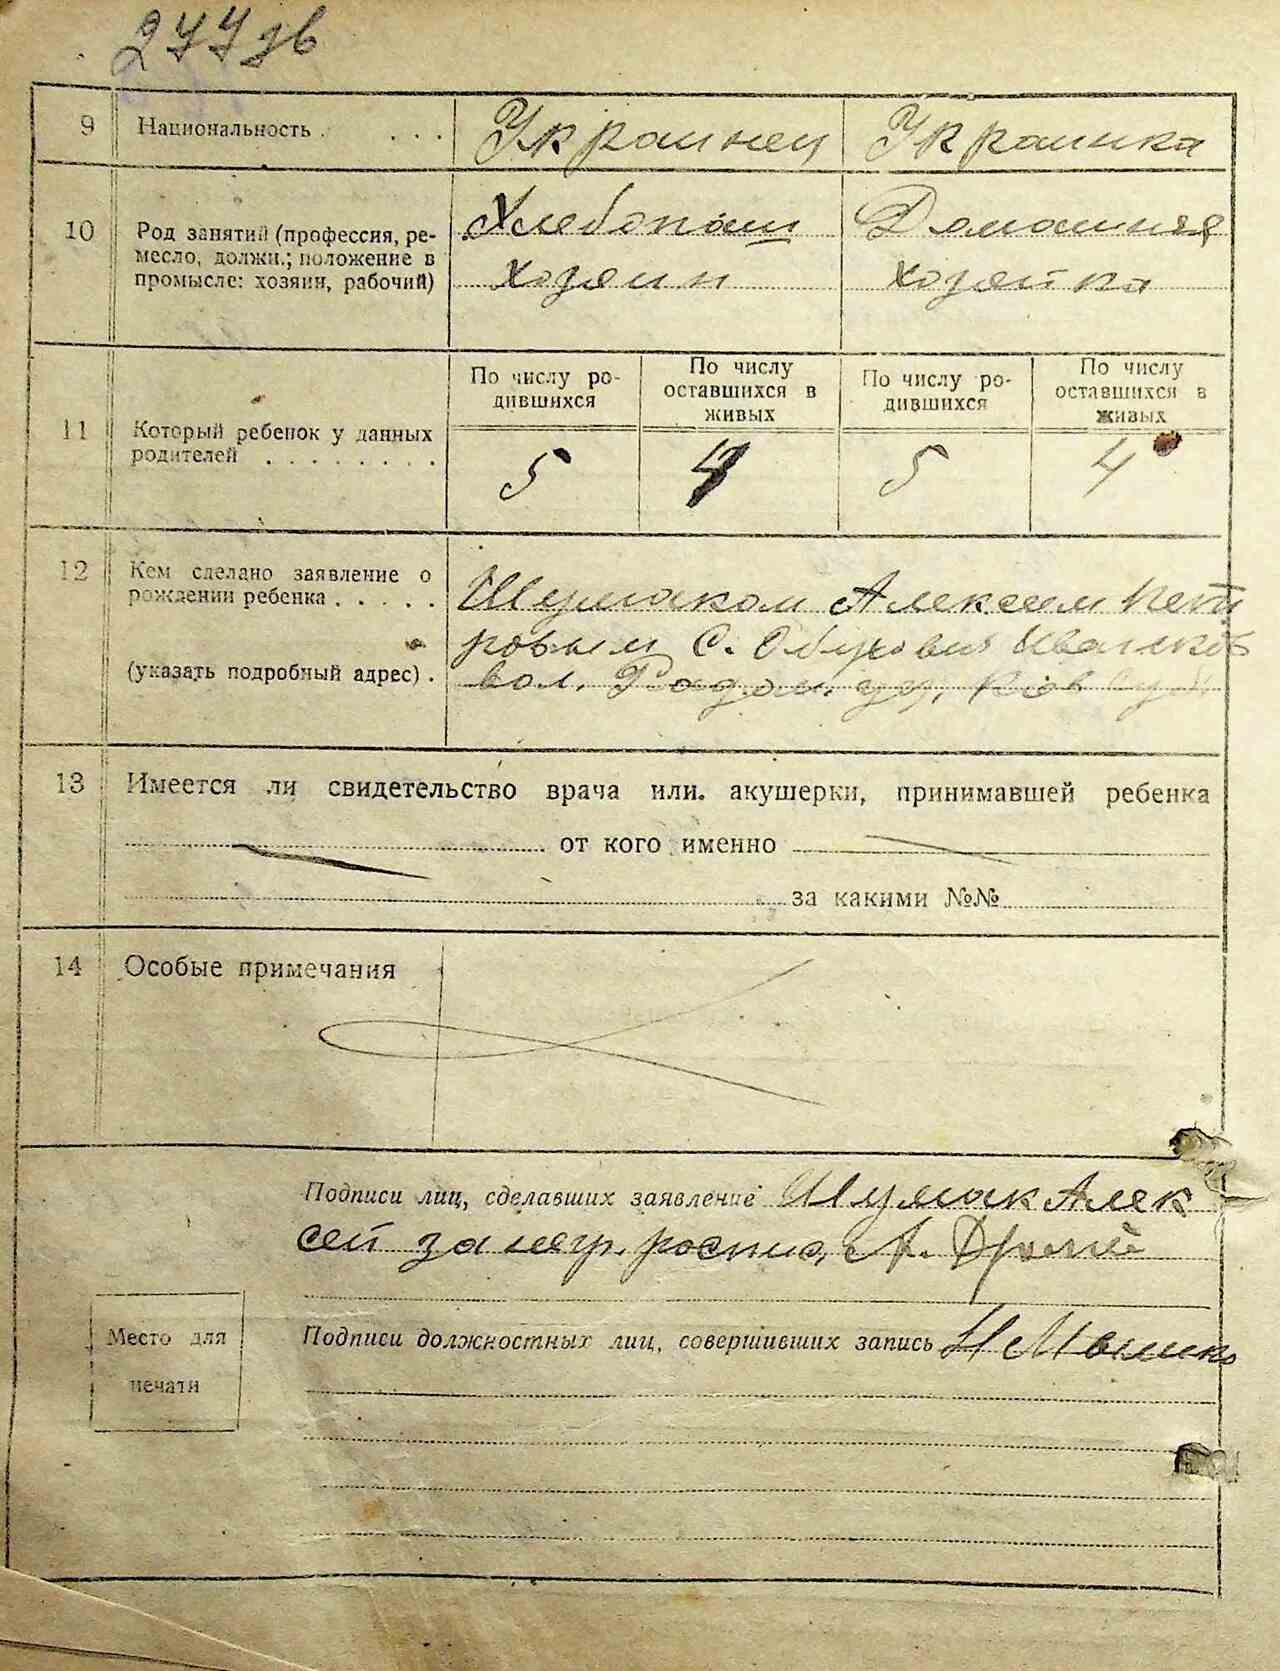 277 зв
9 Национальность . . . . Украинец Украинка
10 Род занятий (профессия, ре-
месло, должн.; положение в
промысле: хозяин, рабочий)
Хлебопаш
хозяин
Домашняя
хозяйка
11 Который ребенок у данных
родителей . . . . . . . .
По числу ро-
дившихся
По числу
оставшихся в
живых
По числу ро-
дившихся
По числу
оставшихся в
живых
5 4 5 4
12 Кем сделано заявление о
рождении ребенка . . . . .
(указать подробный адрес) .
Шумаком Алексеем Пет
ровым С. Обуховка Иванков
вол. Радом. у., Киев губ
13 Имеется ли свидетельство врача или акушерки, принимавшей ребенка
от кого именно
за какими №№
14 Особые примечания
Подписи лиц, сделавших заявление Шумак Алек
сей за негр. роспис, А.
Место для
печати
Подписи должностных лиц, совершивших запись Н